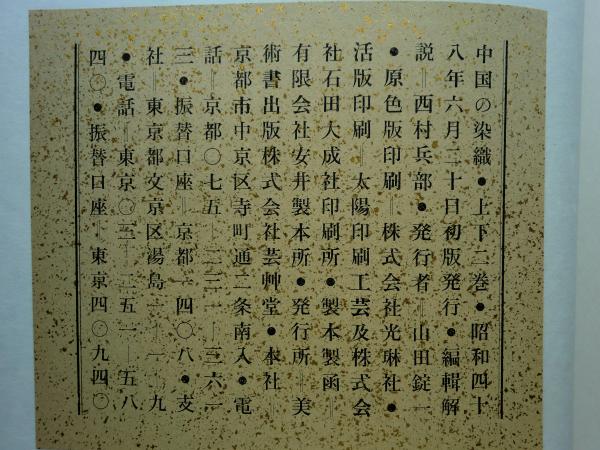 中国の染織●上下二巻●昭和四十
八年六月二十日初版発行●編輯解
説‖西村兵部●発行者‖山田錠一
●原色版印刷‖株式会社光琳社●
活版印刷‖太陽印刷工芸及株式会
社石田大成社印刷所●製本製函‖
有限会社安井製本所●発行所‖美
術書出版株式会社芸艸堂●本社‖
京都市中京区寺町通二条南入●電
話‖京都〇七五―二三一―三六一
三●振替口座‖京都一四〇八●支
社‖東京都文京区湯島―一一―九
●電話‖東京〇三―二五一―五八
四〇●振替口座‖東京四〇九四〇